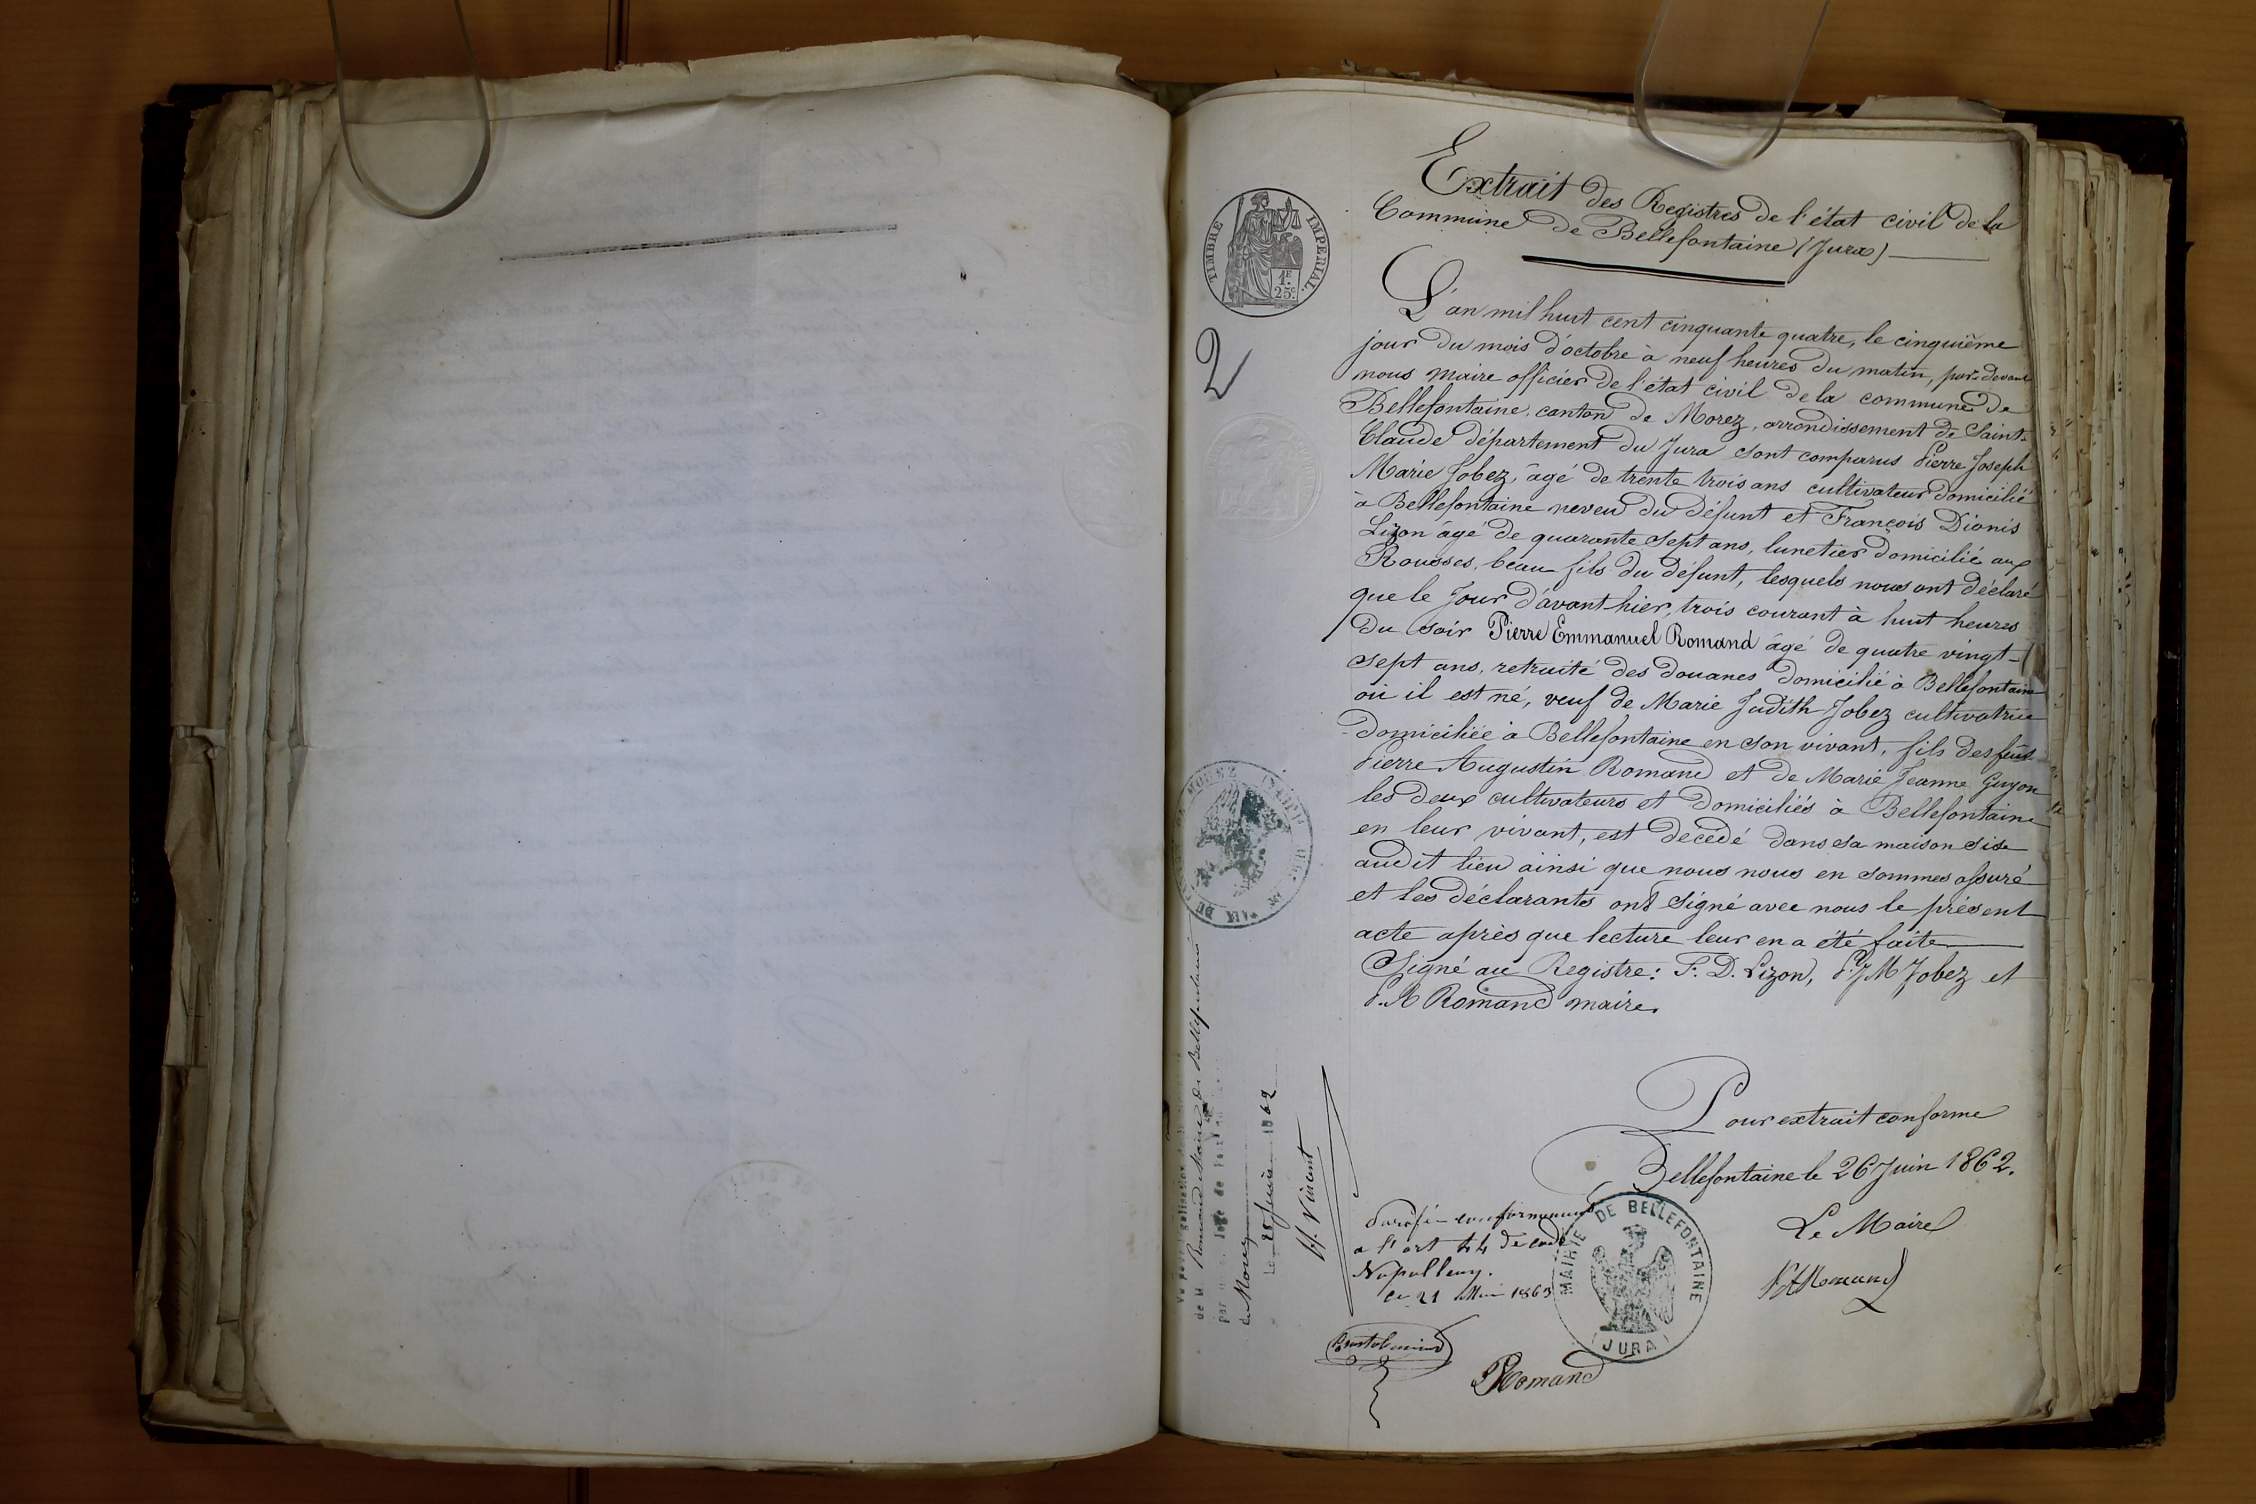 Extrait des Registres de l'état civil de la
Commune de Bellefontaine (Jura)
TIMBRE IMPERIAL
1F.
25c.
2
L'an mil huit cent cinquante quatre, le cinquième
jour du mois d'octobre à neuf heures du matin, par-devant
nous maire officier de l'état civil de la commune de
Bellefontaine, canton de Morez, arrondissement de Saint-
Claude département du Jura sont comparus Pierre Joseph
Marie Jobez, âgé de trente trois ans cultivateur domicilié
à Bellefontaine neveu du défunt et François Dionis
Lizon âgé de quarante sept ans, lunetier domicilié aux
Rousses, beau-fils du défunt, lesquels nous ont déclaré
que le Jour d'avant hier, trois courant à huit heures
du soir Pierre Emmanuel Romand âgé de quatre vingt-
sept ans, retraité des douanes domicilié à Bellefontaine
où il est né, veuf de Marie Judith Jobez cultivatrice
domiciliée à Bellefontaine en son vivant, fils des feus
Pierre Augustin Romand et de Marie Jeanne Guyon
les deux cultivateurs et domiciliés à Bellefontaine
en leur vivant, est décédé dans sa maison sise
audit lieu ainsi que nous nous en sommes assuré
et les déclarants ont signé avec nous le présent
acte après que lecture leur en a été faite
Signé au Registre: F. D. Lizon, P. J M Jobez et
P. A Romand maire.
Pour extrait conforme
Bellefontaine le 26 Juin 1862.
Le Maire
PARomand
MAIRIE DE BELLEFONTAINE
(JURA)
conformément
a l'art 44 de code
Napolleon.
Ce 21 Mai 1863
Romand
Vu pour légalisation
de M Romand Maire de Bellefontaine
par Juge de Paix
de Morez
Le 28 Juin 1862
H. Vincent